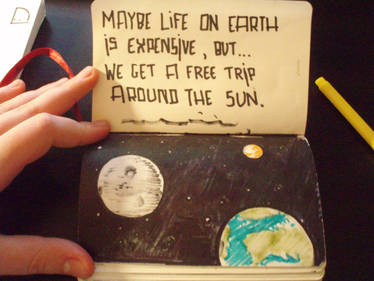 MAYBE LIFE ON EARTH
iS EXPENSiVE, BUT...
WE GET A FREE TRiP
AROUND THE SUN.